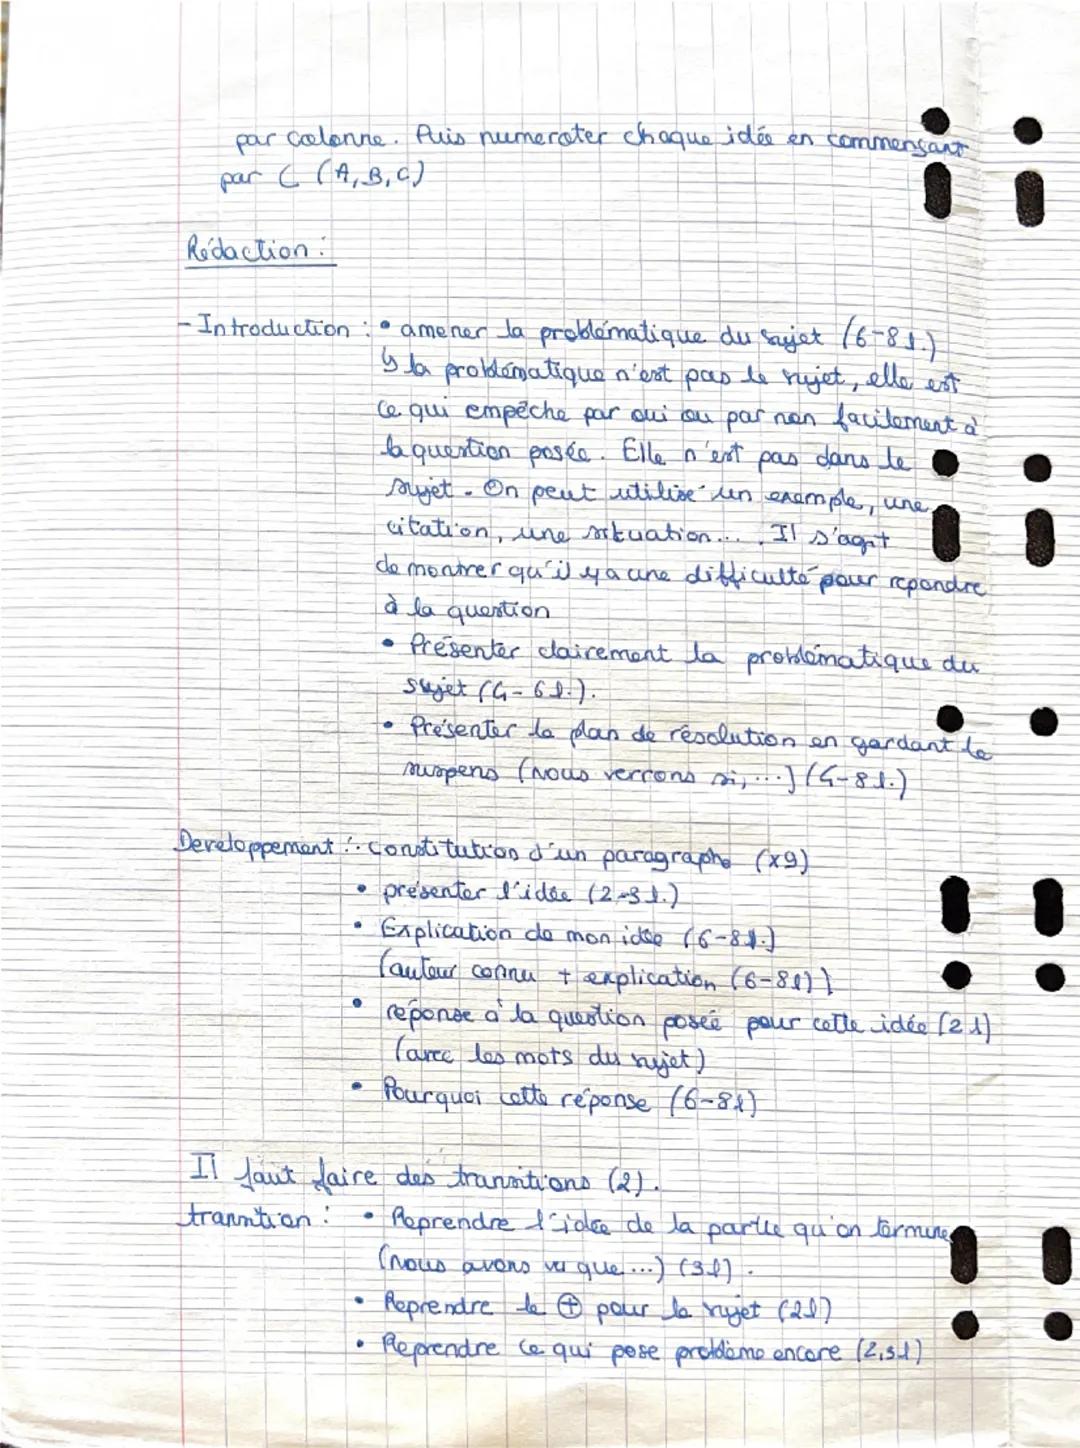 par colonne. Puis numeroter chaque idée en commensant
par C (A, B, C)
Rédaction :
- Introduction : • amener la problématique du sujet (6-8 l.)
↳ la problématique n'est pas le sujet, elle est
ce qui empêche par oui ou par non facilement à
la question posée. Elle n'est pas dans le
sujet. On peut utilisé un exemple, une
citation, une situation.... Il s'agit
de montrer qu'il y a une difficulté pour repondre
à la question
• Présenter clairement la problématique du
sujet (4-6 l.).
• Présenter le plan de résolution en gardant le
suspens (nous verrons si, ...) (4-8 l.)
Developpement : constitution d'un paragraphe (x9)
• présenter l'idée (2-3 l.)
• Explication de mon idée (6-8 l.)
(auteur connu + explication (6-8 l))
• réponse à la question posée pour cette idée (2 l)
(avec les mots du sujet)
• Pourquoi cette réponse (6-8 l)
Il faut faire des transitions (2).
transition : • Reprendre l'idée de la partie qu'on termine
(nous avons vu que...) (3 l).
• Reprendre le ⊕ pour le sujet (2 l)
• Reprendre ce qui pose problème encore (2,3 l)